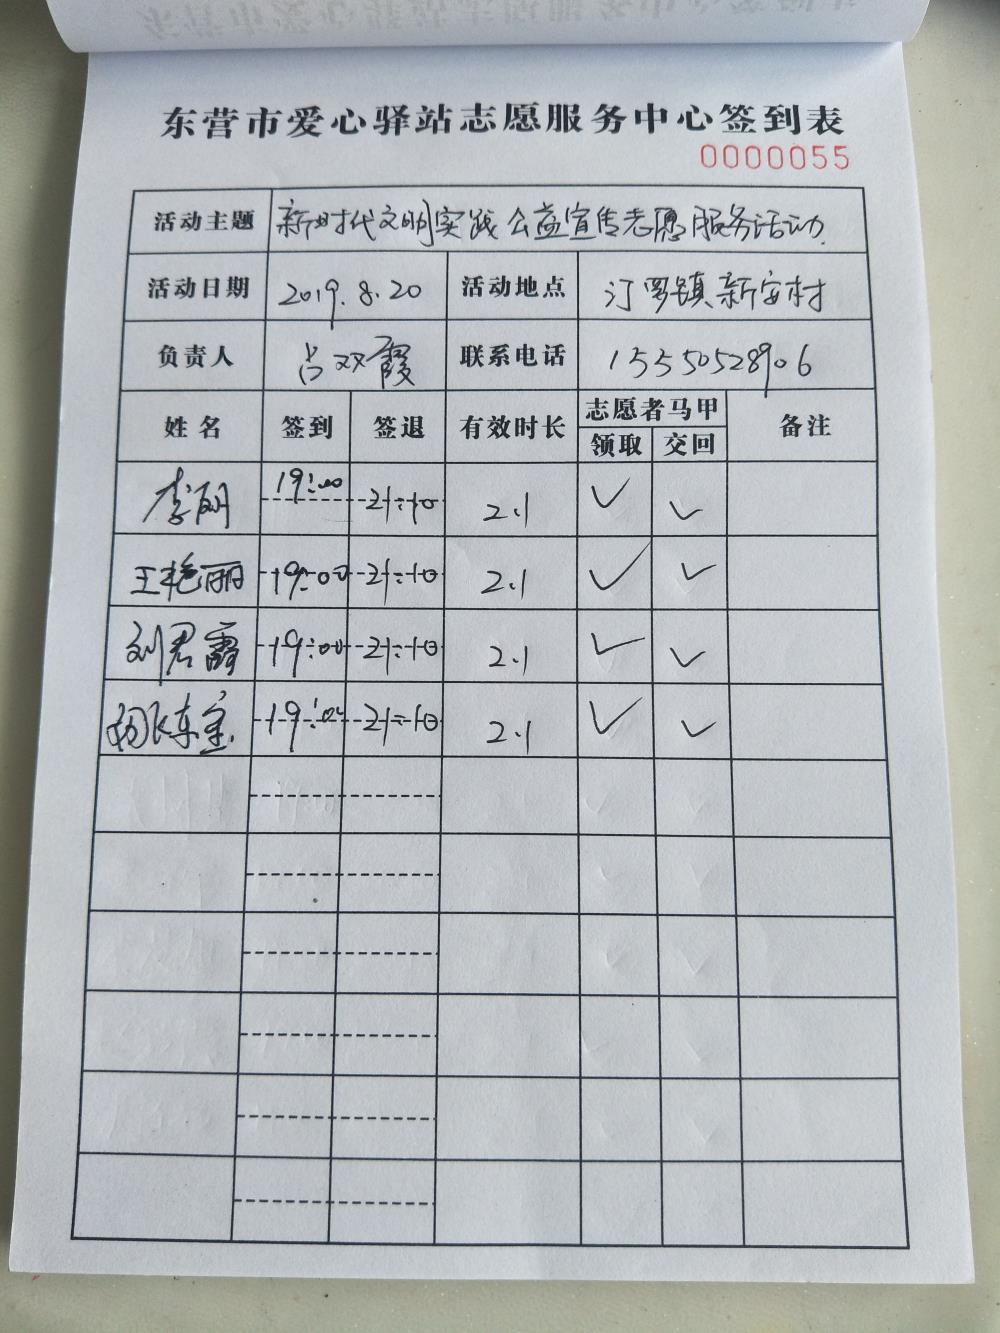 东营市爱心驿站志愿服务中心签到表
0000055
活动主题 新时代文明实践公益宣传志愿服务活动
活动日期 2019.8.20 活动地点 汀罗镇新安村
负责人 吕双霞 联系电话 15550528906
姓名 签到 签退 有效时长 志愿者马甲 备注
领取 交回
李丽 19:00 21:10 2.1 ✓ ✓
王艳丽 19:00 21:10 2.1 ✓ ✓
刘君霞 19:00 21:10 2.1 ✓ ✓
19:00 21:10 2.1 ✓ ✓